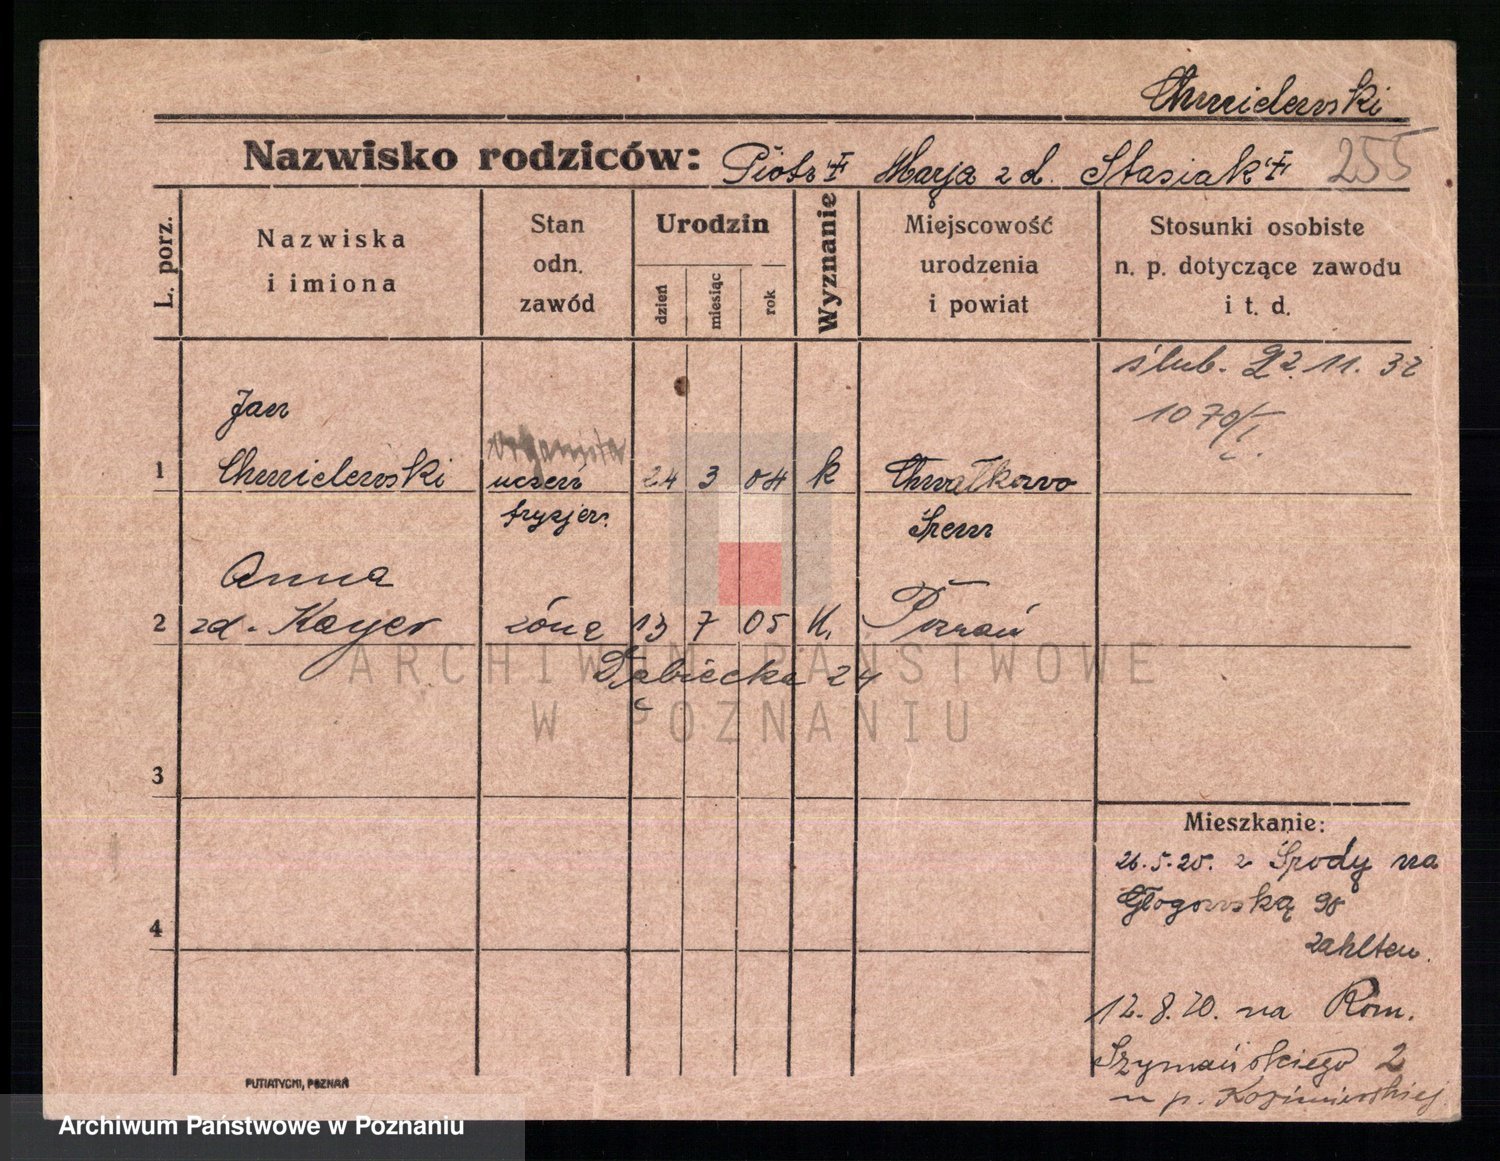 Chmielewski
Nazwisko rodziców: Piotr ✝ Marja z d. Stasiak ✝ 255
L. porz.
Nazwiska
i imiona
Stan
odn.
zawód
Urodzin
dzień
miesiąc
rok
Wyznanie
Miejscowość
urodzenia
i powiat
Stosunki osobiste
n. p. dotyczące zawodu
i t. d.
ślub. 22.11.32
1079/I.
Jan
organista
1 Chmielewski uczeń 24 3 04 k Chwałkowo
fryzjer. Śrem
Anna
2 zd. Kayer żona 13 7 05 k. Poznań
Dębiecka 24
3
4
Mieszkanie:
26.5.20. z Środy na
Głogowską 98
12.8.20. na Rom.
Szymańskiego 2
u p. Kazimierskiej
PUTIATYCKI, POZNAŃ
ARCHIWUM PAŃSTWOWE
W POZNANIU
Archiwum Państwowe w Poznaniu